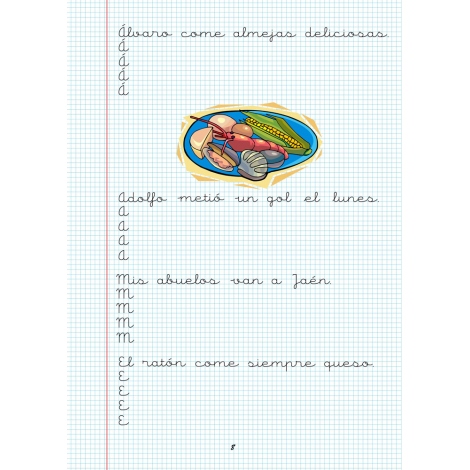 Álvaro come almejas deliciosas.
Á
Á
Á
Á
Adolfo metió un gol el lunes.
A
A
A
A
Mis abuelos van a Jaén.
M
M
M
M
El ratón come siempre queso.
E
E
E
E
8